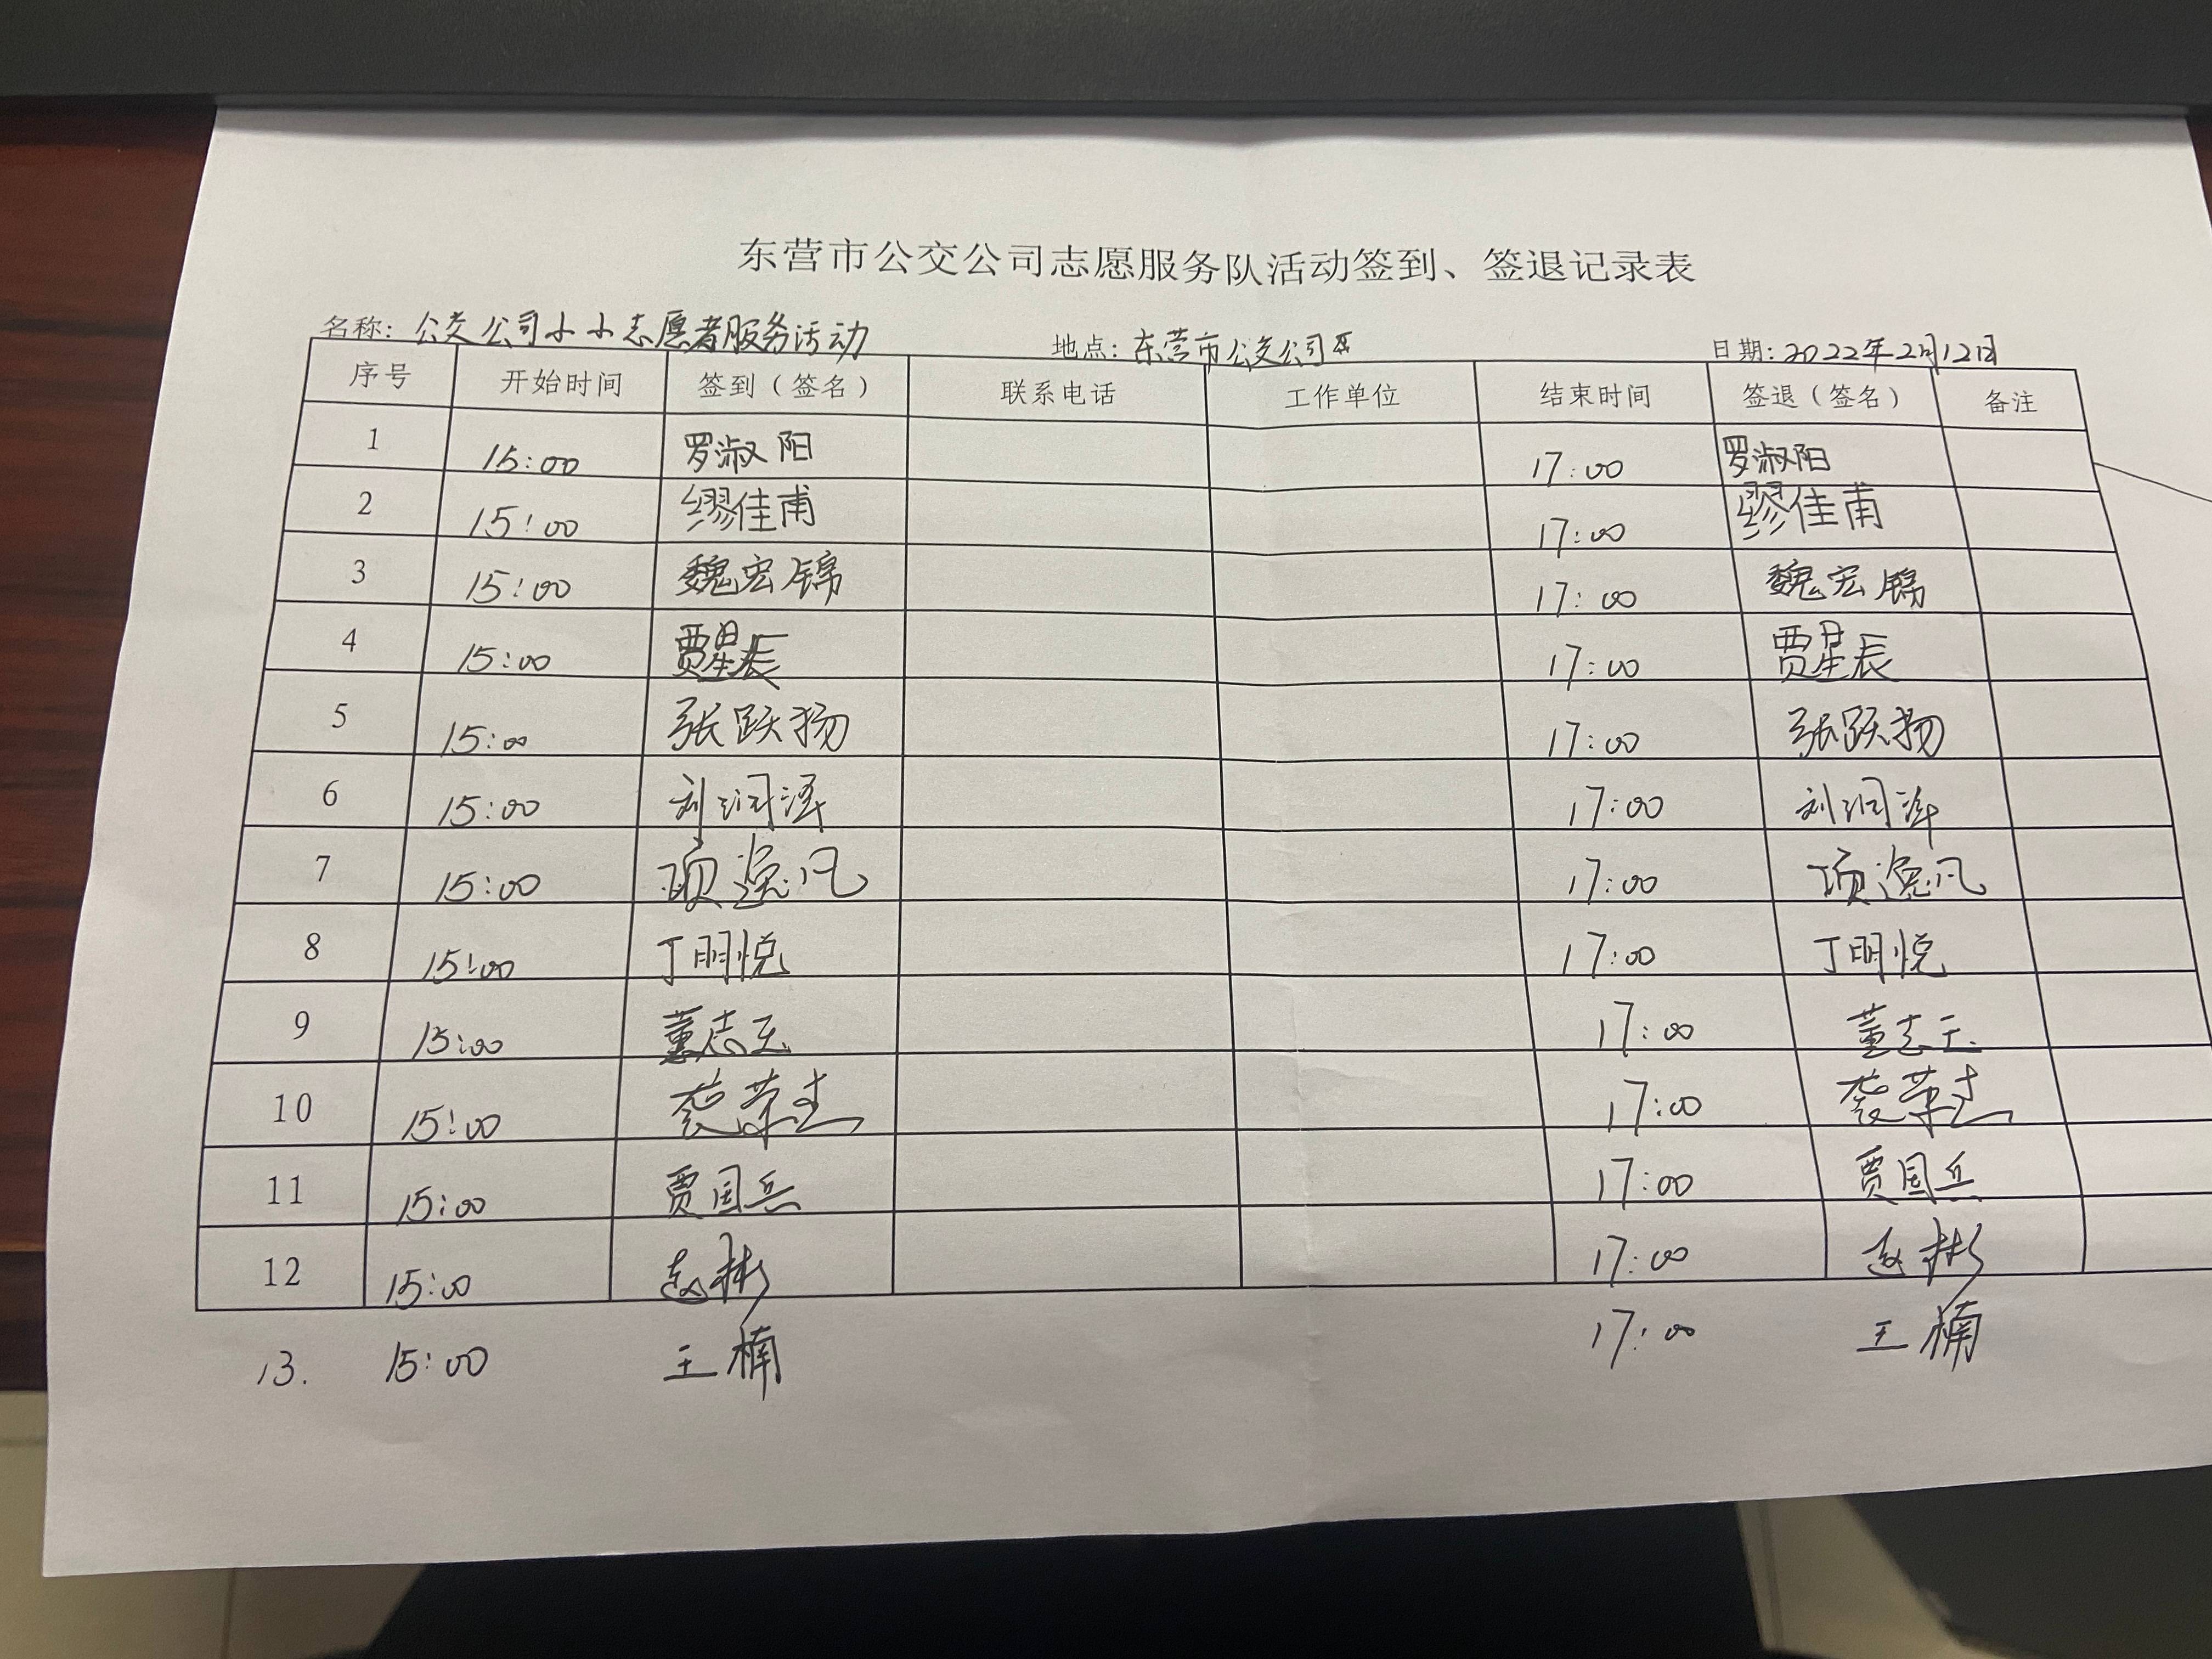 东营市公交公司志愿服务队活动签到、签退记录表
名称: 公交公司小小志愿者服务活动 地点: 东营市公交公司 日期: 2022年2月12日
序号 开始时间 签到（签名） 联系电话 工作单位 结束时间 签退（签名） 备注
1 15:00 罗淑阳 17:00 罗淑阳
2 15:00 缪佳甫 17:00 缪佳甫
3 15:00 魏宏锦 17:00 魏宏锦
4 15:00 贾星辰 17:00 贾星辰
5 15:00 张跃扬 17:00 张跃扬
6 15:00 刘润泽 17:00 刘润泽
7 15:00 项逸凡 17:00 项逸凡
8 15:00 丁明悦 17:00 丁明悦
9 15:00 董志玉 17:00 董志玉
10 15:00 袭荣杰 17:00 袭荣杰
11 15:00 贾国兵 17:00 贾国兵
12 15:00 赵彬 17:00 赵彬
13. 15:00 王楠 17:00 王楠